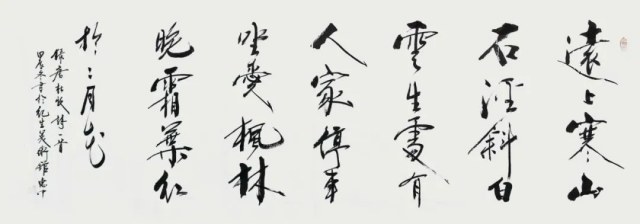 遠上寒山
石徑斜白
雲生處有
人家停車
坐愛楓林
晚霜葉紅
於二月花
錄唐杜牧詩一首
美術館